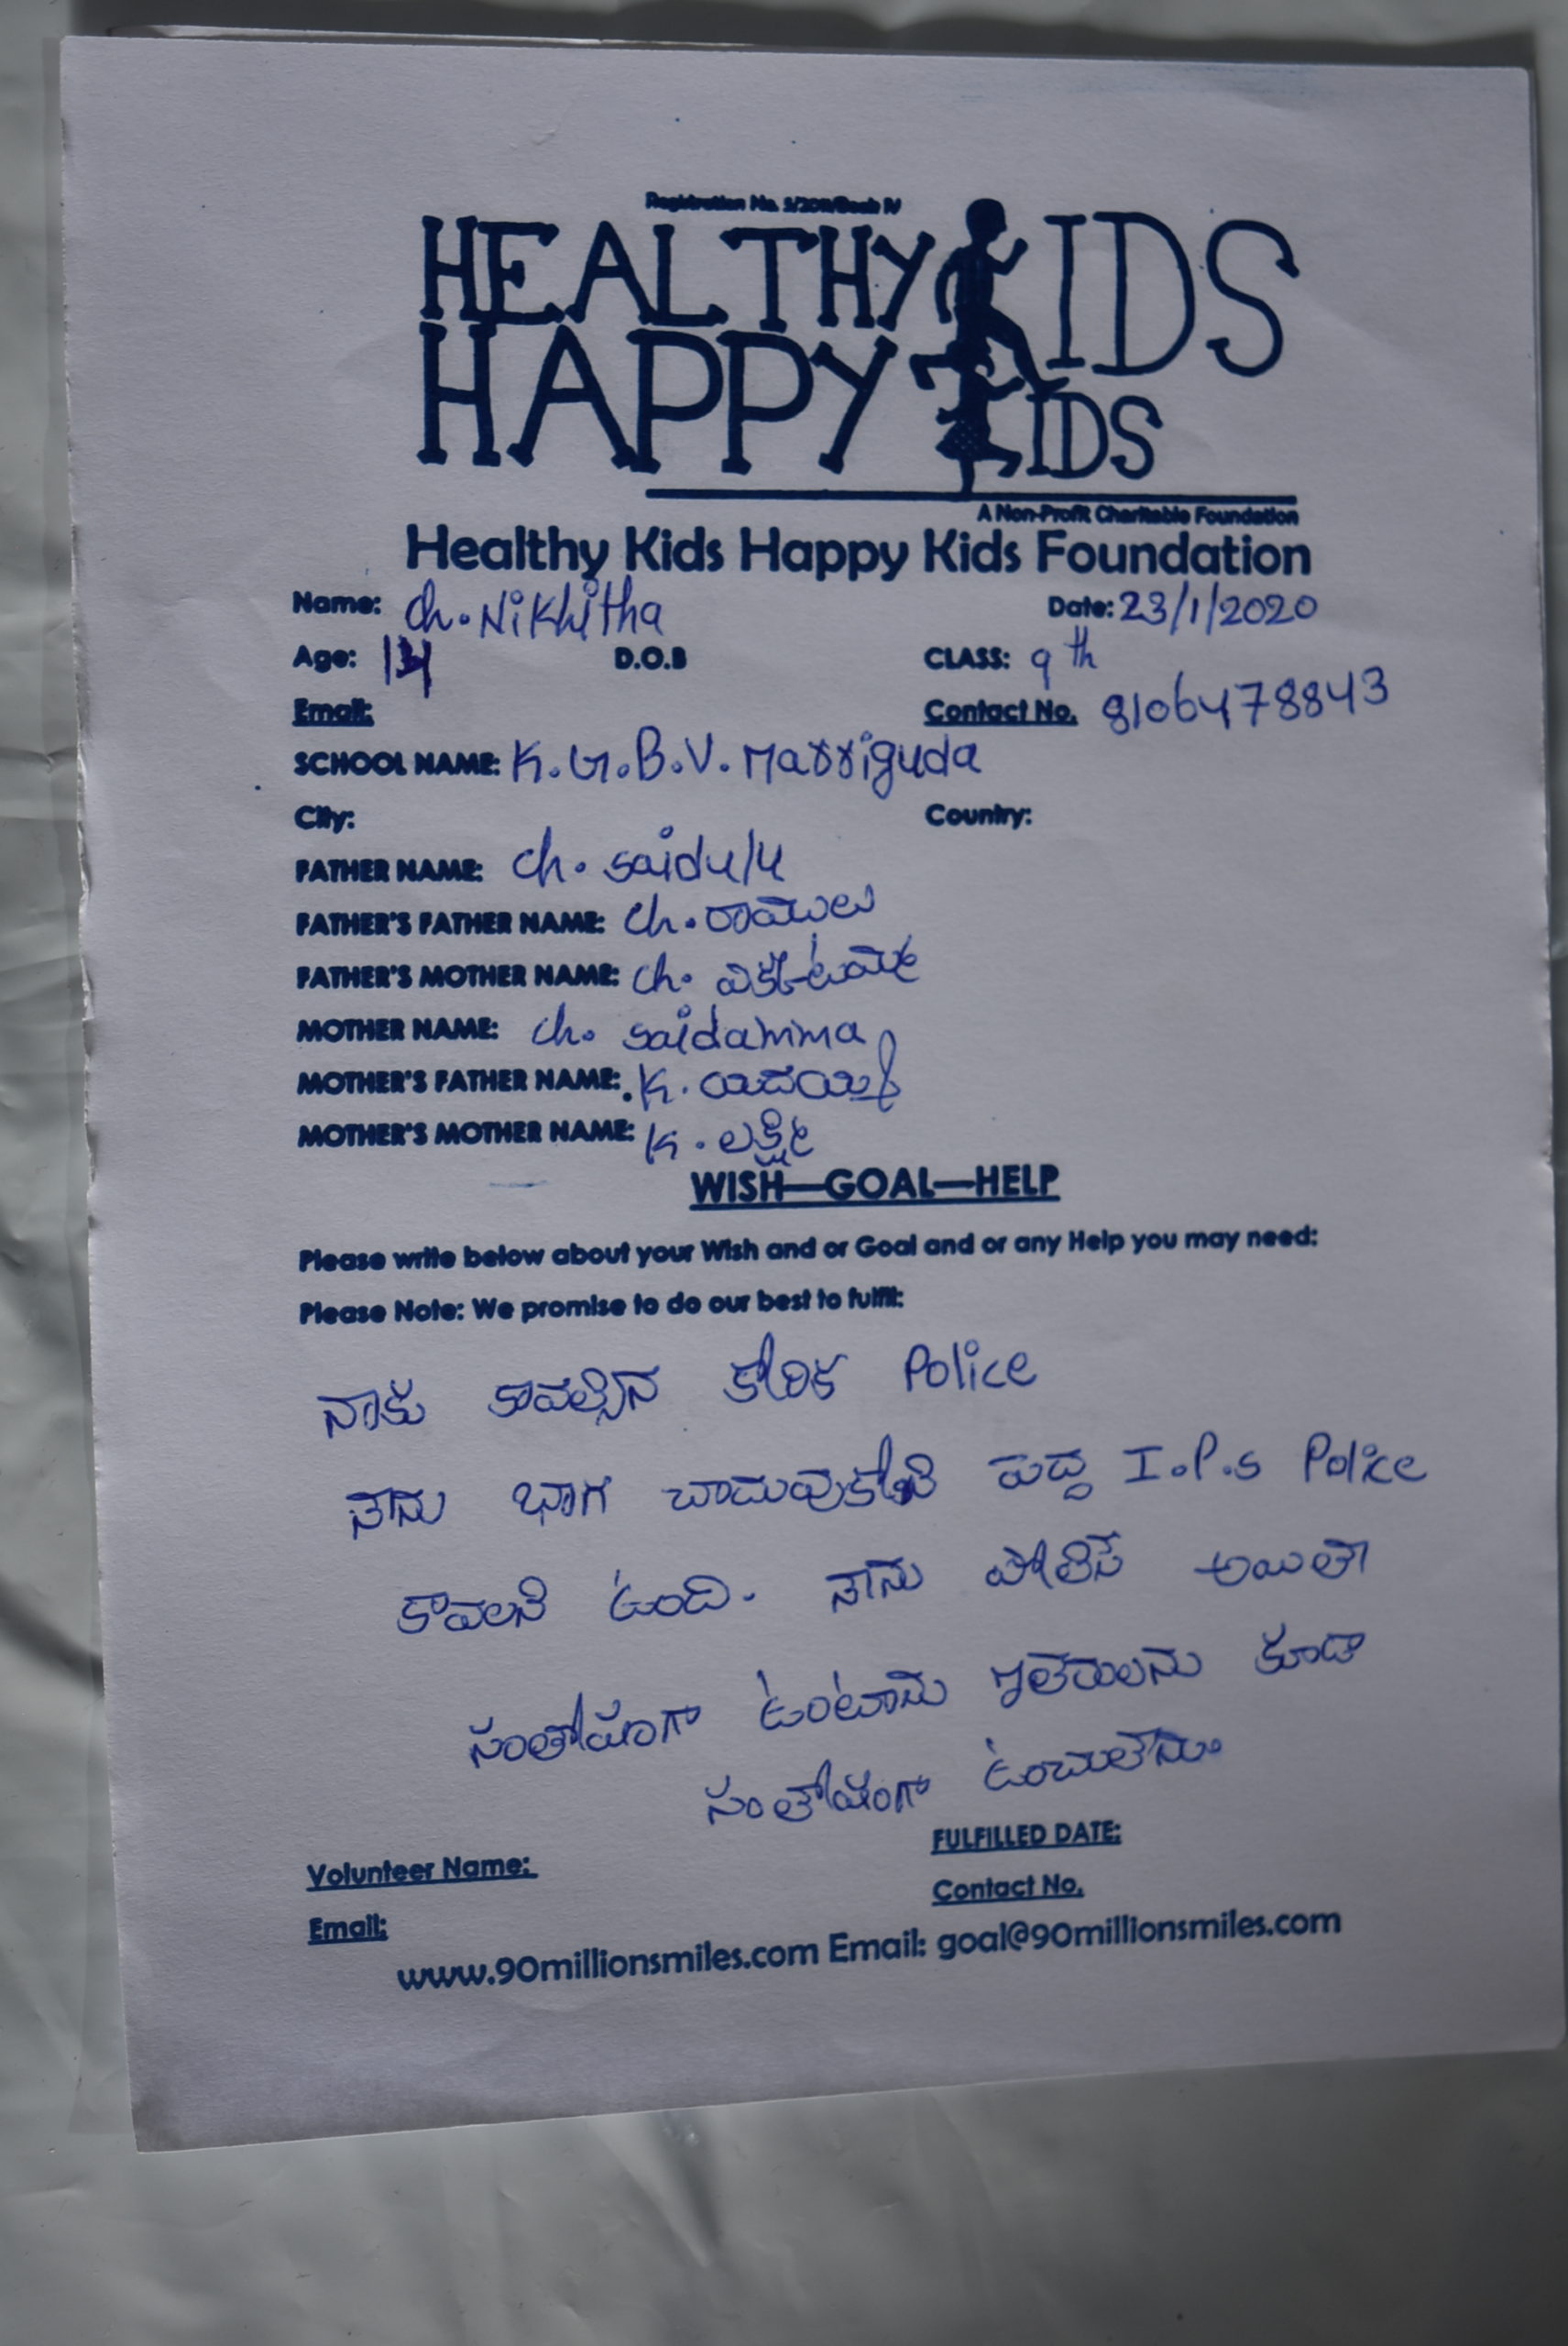 Registration No. 5/2011/Book IV
HEALTHY KIDS
HAPPY KIDS
A Non-Profit Charitable Foundation
Healthy Kids Happy Kids Foundation
Name: Ch. Nikhitha Date: 23/1/2020
Age: 14 D.O.B CLASS: 9th
Email: Contact No. 8106478843
SCHOOL NAME: K.G.B.V. Marriguda
City: Country:
FATHER NAME: Ch. Saidulu
FATHER'S FATHER NAME: Ch. రాములు
FATHER'S MOTHER NAME: Ch.
MOTHER NAME: Ch. Saidamma
MOTHER'S FATHER NAME: K. యాదయ్య
MOTHER'S MOTHER NAME: K. లక్ష్మి
WISH—GOAL—HELP
Please write below about your Wish and or Goal and or any Help you may need:
Please Note: We promise to do our best to fulfil:
నాకు కావల్సిన కోరిక Police
నాను భాగ చామవుకోని పెద్ద I.P.S Police
కావలని ఉంది. నాను పోలిసే అయితా
సంతోషంగా ఉంటాను ఇతరులను కూడా
సంతోషంగా ఉంచుతాను.
Volunteer Name: FULFILLED DATE:
Email: Contact No.
www.90millionsmiles.com Email: goal@90millionsmiles.com